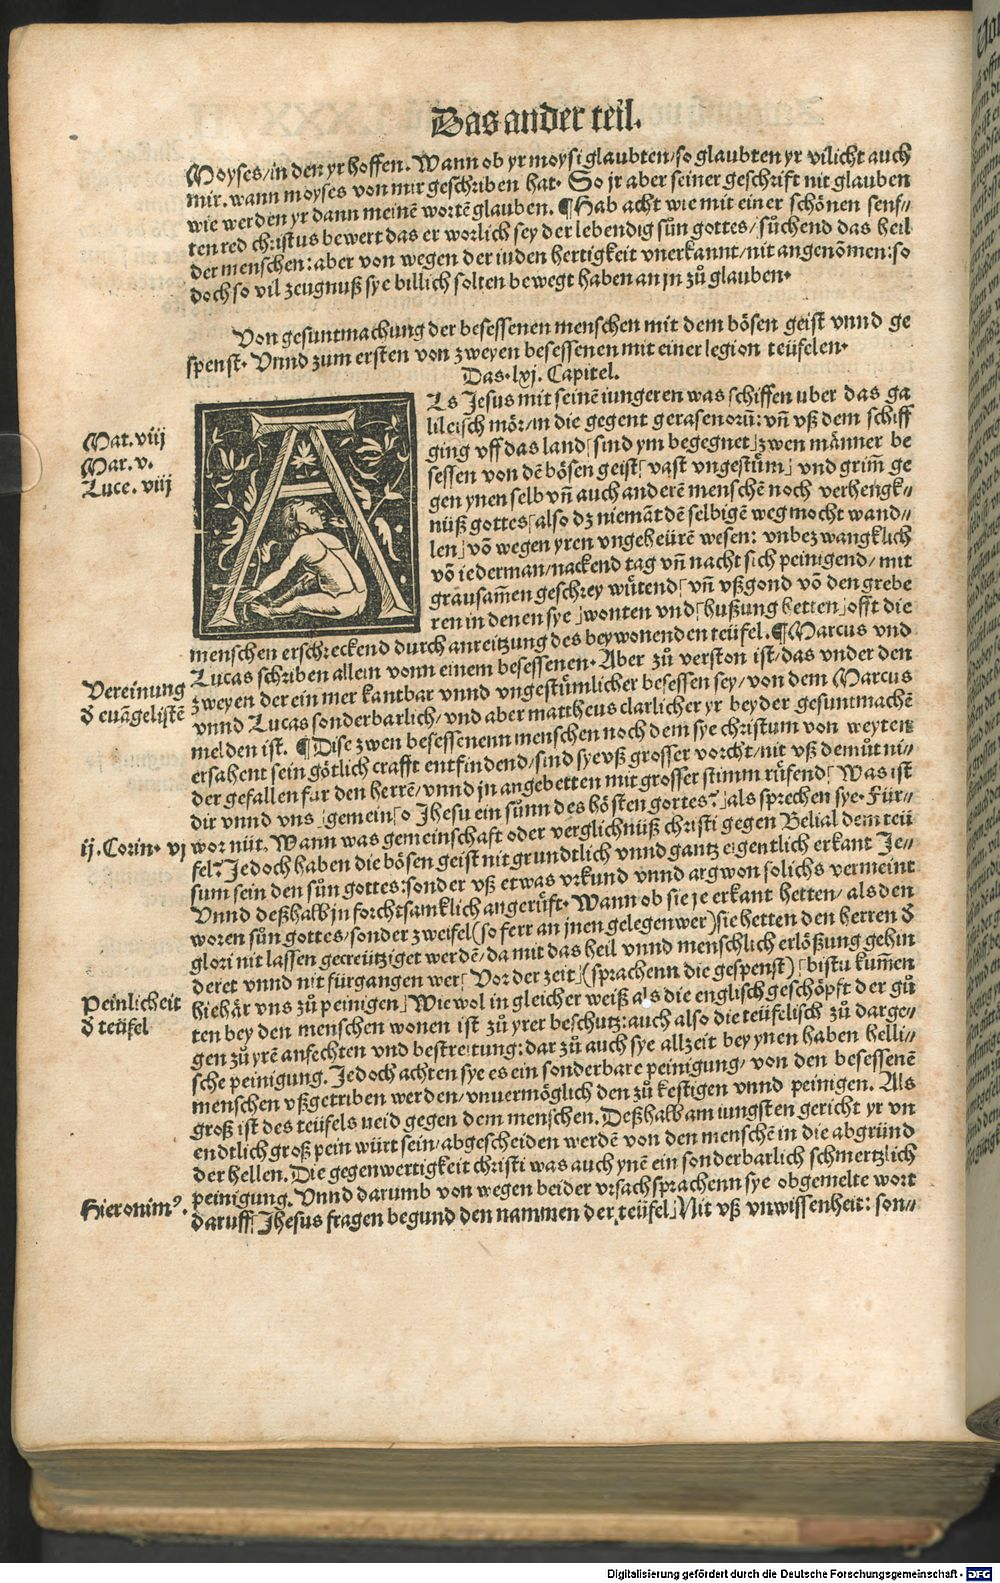 Das ander teil.
Moyses/in den yr hoffen. Wann ob yr moysi glaubten/so glaubten yr vilicht auch
mir. wann moyses von mir geschriben hat. So jr aber seiner geschrift nit glauben
wie werden yr dann meinē wortē glauben. ¶Hab acht wie mit einer schönen senf⸗
ten red christus bewert das er worlich sey der lebendig sůn gottes/sůchend das heil
der menschen: aber von wegen der iuden hertigkeit vnerkannt/nit angenōmen: so
doch so vil zeugnuß sye billich solten bewegt haben an jn zů glauben.
Von gesuntmachung der besessenen menschen mit dem bösen geist vnnd ge
spenst. Vnnd zum ersten von zweyen besessenen mit einer legion teüfelen.
Das. lxj. Capitel.
Mat. viij
Mar. v.
Luce. viij
ALs Jesus mit seinē iungeren was schiffen uber das ga
lileisch mör/in die gegent gerasenorū: vñ vß dem schiff
ging vff das land⌈sind ym begegnet⌋zwen männer be
sessen von dē bösen geist⌈vast vngestüm⌋ vnd grim̄ ge
gen ynen selb vñ auch anderē menschē noch verhengk⸗
nüß gottes⌈also dz niemāt dē selbigē weg mocht wand⸗
len⌋vō wegen yren vngeheürē wesen: vnbezwangklich
vō iederman/nackend tag vñ nacht sich peinigend/ mit
grausam̄en geschrey wütend⌈vñ vßgond vō den grebe
ren in denen sye⌋wonten vnd⌈hußung hetten⌋offt die
menschen erschreckend durch anreitzung des beywonenden teüfel. ¶Marcus vnd
Lucas schriben allein vonn einem besessenen. Aber zů verston ist/das vnder den
Vereinung
đ evāgelistē
zweyen der ein mer kantbar vnnd vngestümlicher besessen sey/von dem Marcus
vnnd Lucas sonderbarlich/vnd aber mattheus clarlicher yr beyder gesuntmachē
melden ist. ¶Dise zwen besessenenn menschen noch dem sye christum von weyten
ersahent sein götlich crafft entfindend/sind sye vß grosser vorcht/nit vß demůt ni⸗
der gefallen fur den herrē/vnnd jn angebetten mit grosser stimm rüfend⌈Was ist
dir vnnd vns⌋gemein⌈o Jhesu ein sůnn des hösten gottes?⌋als sprechen sye. Für⸗
ij. Corin. vj
wor nüt. Wann was gemeinschaft oder verglichnüß christi gegen Belial dem teü
fel? Jedoch haben die bösen geist nit grundtlich vnnd gantz eigentlich erkant Je⸗
sum sein den sůn gottes: sonder vß etwas vrkund vnnd argwon solichs vermeint
Vnnd deßhalb jn forchtsamklich angerüft. Wann ob sie je erkant hetten/als den
woren sůn gottes/sonder zweifel (so ferr an jnen gelegen wer) sie hetten den herren đ
glori nit lassen gecreütziget werdē/da mit das heil vnnd menschlich erlößung gehin
deret vnnd nit fürgangen wer⌈Vor der zeit⌋(sprachenn die gespenst)⌈bistu kum̄en
Peinlicheit
đ teüfel
hiehär vns zů peinigen⌋Wie wol in gleicher weiß als die englisch geschöpft der gů
ten bey den menschen wonen ist zů yrer beschutz: auch also die teüfelisch zů darge⸗
gen zů yrē anfechten vnd bestreitung: dar zů auch sye allzeit bey ynen haben helli⸗
sche peinigung. Jedoch achten sye es ein sonderbare peinigung/ von den besessenē
menschen vßgetriben werden/vnuermöglich den zů kestigen vnnd peinigen. Als
groß ist des teüfels neid gegen dem menschen. Deßhalb am iungsten gericht yr vn
endtlich groß pein würt sein/abgescheiden werdē von den menschē in die abgründ
der hellen. Die gegenwertigkeit christi was auch ynē ein sonderbarlich schmertzlich
Hieronimꝰ.
peinigung. Vnnd darumb von wegen beider vrsach sprachenn sye obgemelte wort
daruff⌈Jhesus fragen begund den nammen der teüfel⌋Nit vß vnwissenheit: son⸗
Digitalisierung gefördert durch die Deutsche Forschungsgemeinschaft - DFG